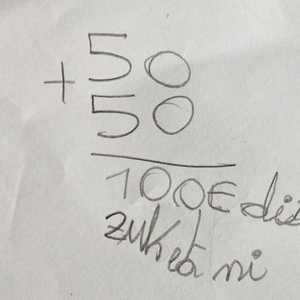 50
+ 50
100€ diz
zuk eta ni